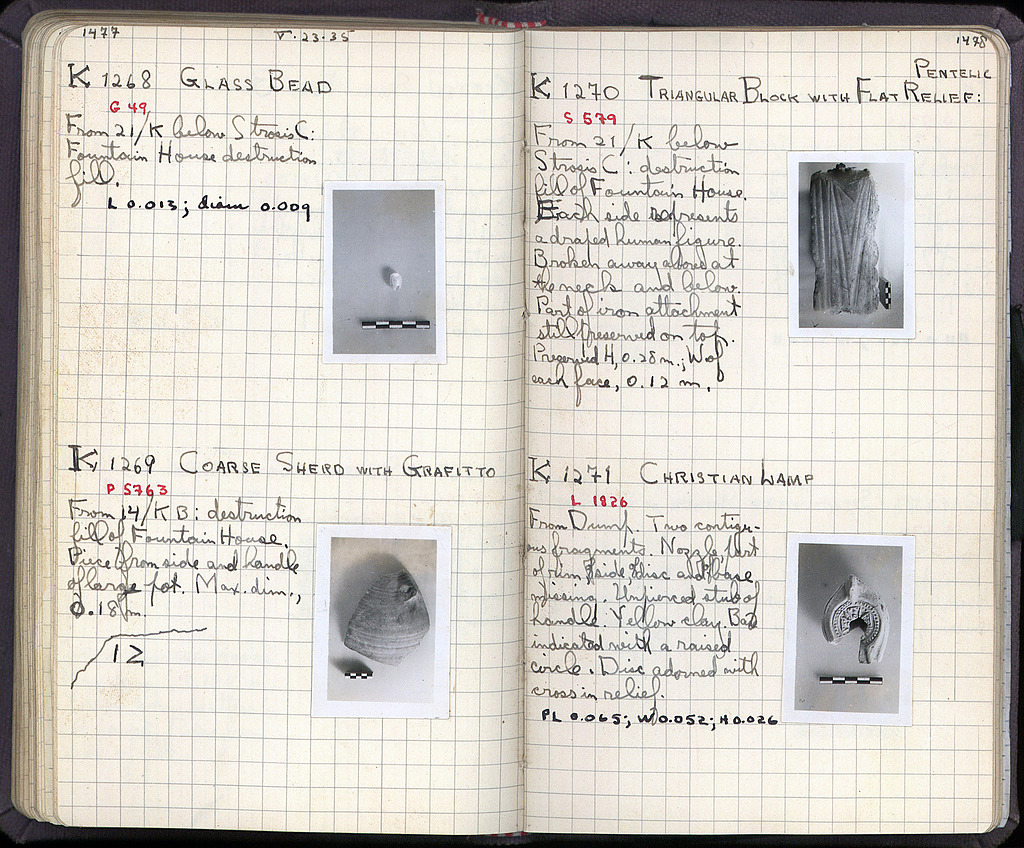 1477
V·23·35
K 1268 GLASS BEAD
G 49
From 21/K below Strosis C:
Fountain House destruction
fill.
L 0.013; diam 0.009
K 1269 COARSE SHERD WITH GRAFITTO
P 5763
From 14/KB: destruction
fill of Fountain House.
Piece from side and handle
of large pot. Max. dim.,
0.18 m.
1478
PENTELIC
K 1270 TRIANGULAR BLOCK WITH FLAT RELIEF:
S 579
From 21/K below
Strosis C: destruction
fill of Fountain House.
Each side represents
a draped human figure.
Broken away above at
the neck and below.
Part of iron attachment
still preserved on top.
Preserved H, 0.28 m.; W of
each face, 0.12 m.
K 1271 CHRISTIAN LAMP
L 1826
From Dump. Two contigu-
ous fragments. Nozzle, part
of rim, side, disc and base
missing. Unpierced stub of
handle. Yellow clay. Base
indicated with a raised
circle. Disc adorned with
cross in relief.
PL 0.065; W 0.052; H 0.026